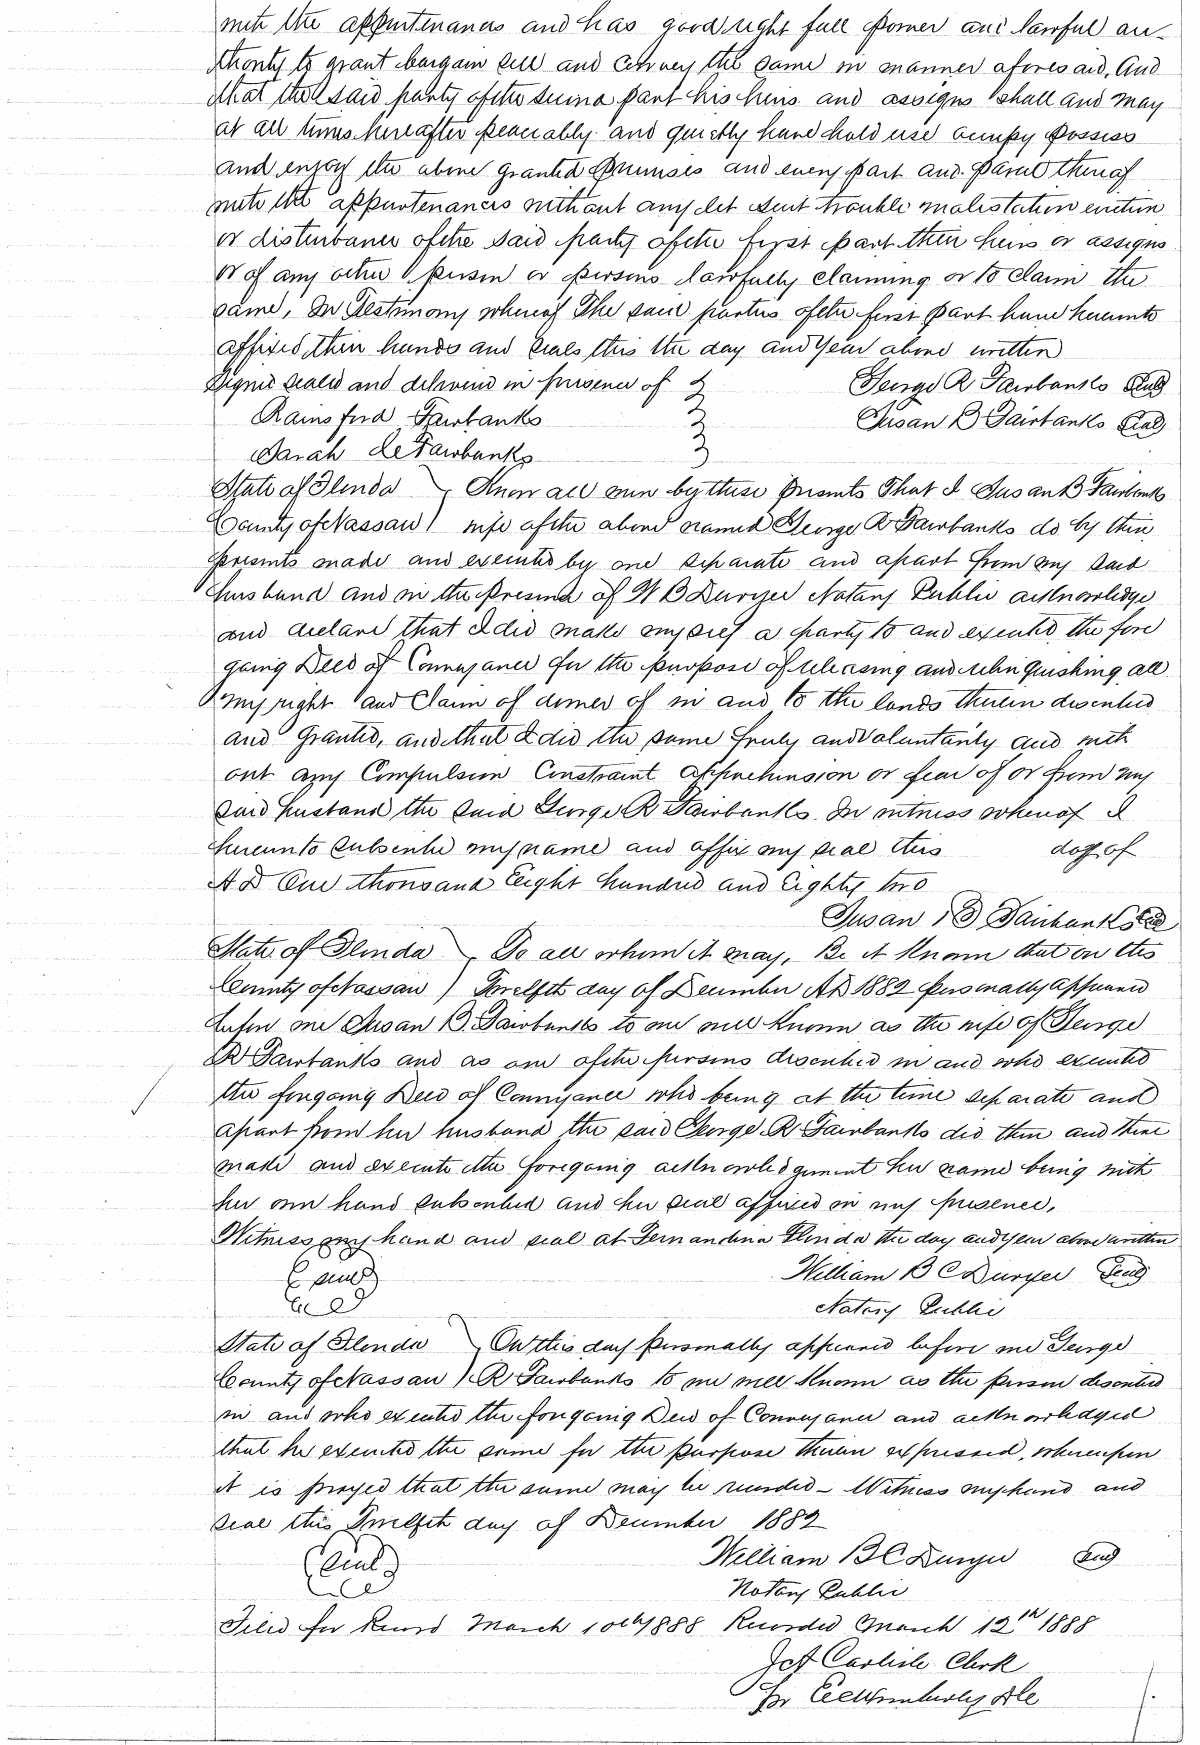 with the appurtenances and has good right full power and lawful au-
thority to grant bargain sell and convey the same in manner aforesaid, And
that the said party of the second part his heirs and assigns shall and may
at all times hereafter peaceably and quietly have hold use occupy possess
and enjoy the above granted premises and every part and parcel thereof
with the appurtenances without any let suit trouble molestation eviction
or disturbance of the said party of the first part their heirs or assigns
or of any other person or persons lawfully claiming or to claim the
same, In Testimony whereof The said parties of the first part have hereunto
affixed their hands and seals this the day and Year above written
Signed sealed and delivered in presence of George R Fairbanks Seal
Rainsford Fairbanks Susan B Fairbanks Seal
Sarah Fairbanks
State of Florida Know all men by these presents That I Susan B Fairbanks
County of Nassau wife of the above named George R Fairbanks do by these
presents made and executed by me separate and apart from my said
husband and in the presence of W B Duryee Notary Public acknowledge
and declare that I did make myself a party to and executed the fore
going Deed of Conveyance for the purpose of releasing and relinquishing all
my right and Claim of dower of in and to the lands therein described
and Granted, and that I did the same freely and Voluntarily and with
out any Compulsion Constraint apprehension or fear of or from my
said husband the said George R Fairbanks. In witness whereof I
hereunto subscribe my name and affix my seal this day of
A D One thousand Eight hundred and Eighty two
Susan B Fairbanks Seal
State of Florida To all whom it may, Be it Known that on this
County of Nassau Twelfth day of December AD 1882 personally appeared
before me Susan B. Fairbanks to me well known as the wife of George
R Fairbanks and as one of the persons described in and who executed
the foregoing Deed of Conveyance who being at the time separate and
apart from her husband the said George R Fairbanks did then and there
make and execute the foregoing acknowledgement her name being with
her own hand subscribed and her seal affixed in my presence,
Witness my hand and seal at Fernandina Florida the day and Year above written
Seal William B C Duryee Seal
Notary Public
State of Florida On this day personally appeared before me George
County of Nassau R Fairbanks to me well Known as the person described
in and who executed the foregoing Deed of Conveyance and acknowledged
that he executed the same for the purpose therein expressed, whereupon
it is prayed that the same may be recorded - Witness my hand and
seal this Twelfth day of December 1882
Seal William B C Duryee Seal
Notary Public
Filed for Record March 10th 1888 Recorded March 12th 1888
Carlisle Clerk
Wimberly